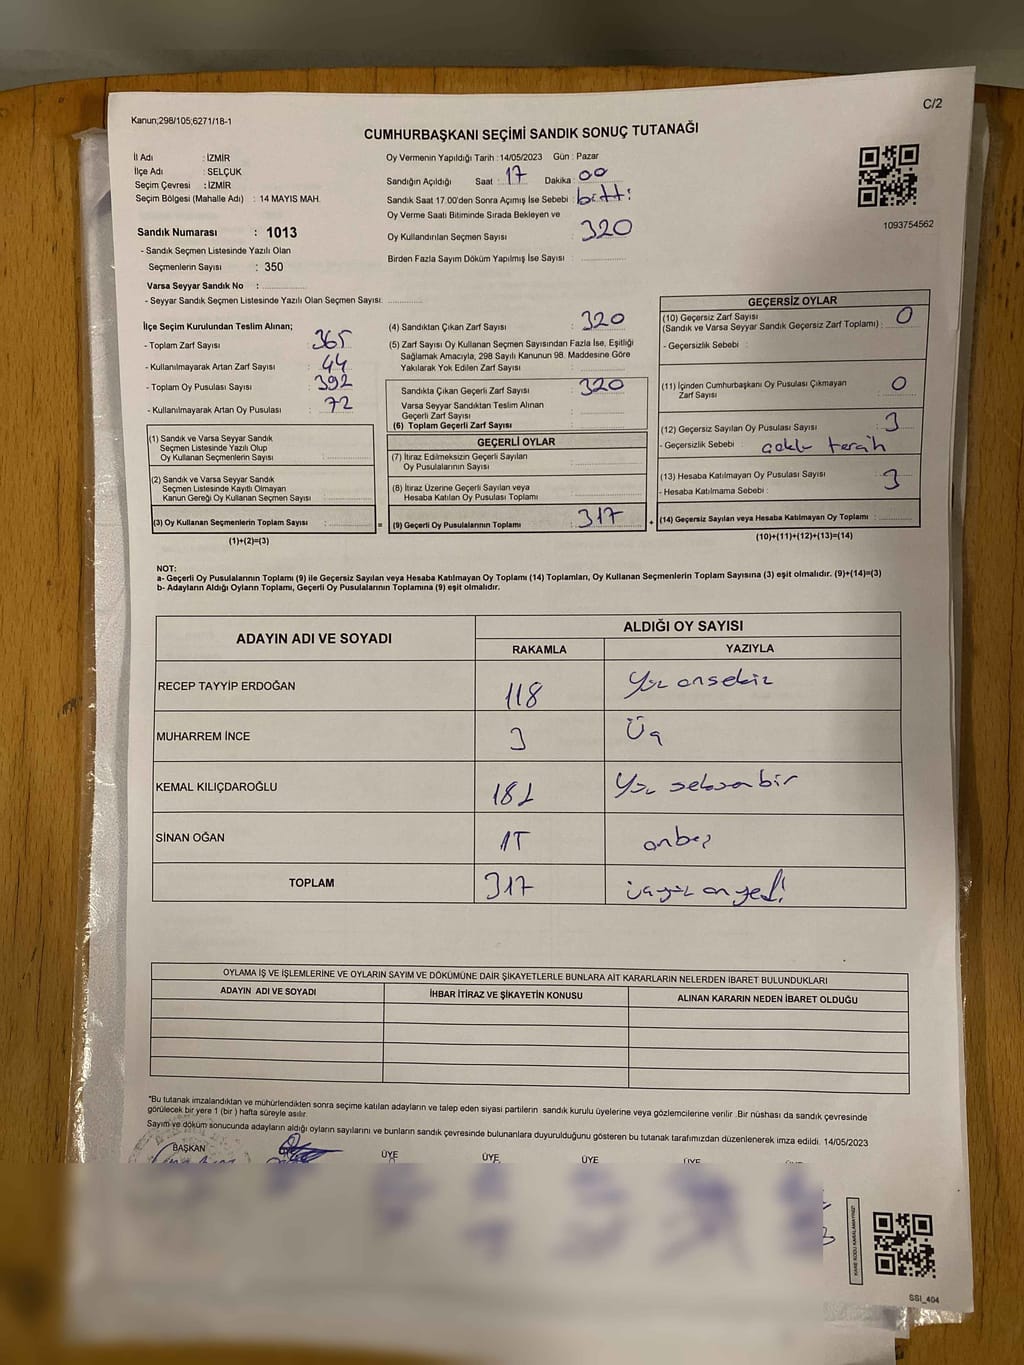 C/2
Kanun;298/105;6271/18-1
CUMHURBAŞKANI SEÇİMİ SANDIK SONUÇ TUTANAĞI
İl Adı : İZMİR
İlçe Adı : SELÇUK
Seçim Çevresi : İZMİR
Seçim Bölgesi (Mahalle Adı) : 14 MAYIS MAH.
Sandık Numarası : 1013
- Sandık Seçmen Listesinde Yazılı Olan
Seçmenlerin Sayısı : 350
Varsa Seyyar Sandık No :
- Seyyar Sandık Seçmen Listesinde Yazılı Olan Seçmen Sayısı:
Oy Vermenin Yapıldığı Tarih : 14/05/2023 Gün : Pazar
Sandığın Açıldığı Saat : 17 Dakika : 00
Sandık Saat 17.00'den Sonra Açımış İse Sebebi : bitti
Oy Verme Saati Bitiminde Sırada Bekleyen ve
Oy Kullandırılan Seçmen Sayısı : 320
Birden Fazla Sayım Döküm Yapılmış İse Sayısı :
1093754562
İlçe Seçim Kurulundan Teslim Alınan;
- Toplam Zarf Sayısı : 365
- Kullanılmayarak Artan Zarf Sayısı : 44
- Toplam Oy Pusulası Sayısı : 392
- Kullanılmayarak Artan Oy Pusulası : 72
(1) Sandık ve Varsa Seyyar Sandık
Seçmen Listesinde Yazılı Olup
Oy Kullanan Seçmenlerin Sayısı :
(2) Sandık ve Varsa Seyyar Sandık
Seçmen Listesinde Kayıtlı Olmayan
Kanun Gereği Oy Kullanan Seçmen Sayısı :
(3) Oy Kullanan Seçmenlerin Toplam Sayısı : =
(1)+(2)=(3)
(4) Sandıktan Çıkan Zarf Sayısı : 320
(5) Zarf Sayısı Oy Kullanan Seçmen Sayısından Fazla İse, Eşitliği
Sağlamak Amacıyla, 298 Sayılı Kanunun 98. Maddesine Göre
Yakılarak Yok Edilen Zarf Sayısı :
Sandıkta Çıkan Geçerli Zarf Sayısı : 320
Varsa Seyyar Sandıktan Teslim Alınan
Geçerli Zarf Sayısı :
(6) Toplam Geçerli Zarf Sayısı :
GEÇERLİ OYLAR
(7) İtiraz Edilmeksizin Geçerli Sayılan
Oy Pusulalarının Sayısı :
(8) İtiraz Üzerine Geçerli Sayılan veya
Hesaba Katılan Oy Pusulası Toplamı :
(9) Geçerli Oy Pusulalarının Toplamı : 317 +
GEÇERSİZ OYLAR
(10) Geçersiz Zarf Sayısı
(Sandık ve Varsa Seyyar Sandık Geçersiz Zarf Toplamı) : 0
- Geçersizlik Sebebi :
(11) İçinden Cumhurbaşkanı Oy Pusulası Çıkmayan
Zarf Sayısı : 0
(12) Geçersiz Sayılan Oy Pusulası Sayısı : 3
- Geçersizlik Sebebi : tercih
(13) Hesaba Katılmayan Oy Pusulası Sayısı : 3
- Hesaba Katılmama Sebebi :
(14) Geçersiz Sayılan veya Hesaba Katılmayan Oy Toplamı :
(10)+(11)+(12)+(13)=(14)
NOT:
a- Geçerli Oy Pusulalarının Toplamı (9) ile Geçersiz Sayılan veya Hesaba Katılmayan Oy Toplamı (14) Toplamları, Oy Kullanan Seçmenlerin Toplam Sayısına (3) eşit olmalıdır. (9)+(14)=(3)
b- Adayların Aldığı Oyların Toplamı, Geçerli Oy Pusulalarının Toplamına (9) eşit olmalıdır.
ADAYIN ADI VE SOYADI ALDIĞI OY SAYISI
RAKAMLA YAZIYLA
RECEP TAYYİP ERDOĞAN 118 Yüz onsekiz
MUHARREM İNCE 3 Üç
KEMAL KILIÇDAROĞLU 181 Yüz seksenbir
SİNAN OĞAN 15 onbeş
TOPLAM 317 üçyüz onyedi
OYLAMA İŞ VE İŞLEMLERİNE VE OYLARIN SAYIM VE DÖKÜMÜNE DAİR ŞİKAYETLERLE BUNLARA AİT KARARLARIN NELERDEN İBARET BULUNDUKLARI
ADAYIN ADI VE SOYADI İHBAR İTİRAZ VE ŞİKAYETİN KONUSU ALINAN KARARIN NEDEN İBARET OLDUĞU
"Bu tutanak imzalandıktan ve mühürlendikten sonra seçime katılan adayların ve talep eden siyasi partilerin sandık kurulu üyelerine veya gözlemcilerine verilir .Bir nüshası da sandık çevresinde
görülecek bir yere 1 (bir ) hafta süreyle asılır.
Sayım ve döküm sonucunda adayların aldığı oyların sayılarını ve bunların sandık çevresinde bulunanlara duyurulduğunu gösteren bu tutanak tarafımızdan düzenlenerek imza edildi. 14/05/2023
BAŞKAN ÜYE ÜYE ÜYE ÜYE
SSI_404